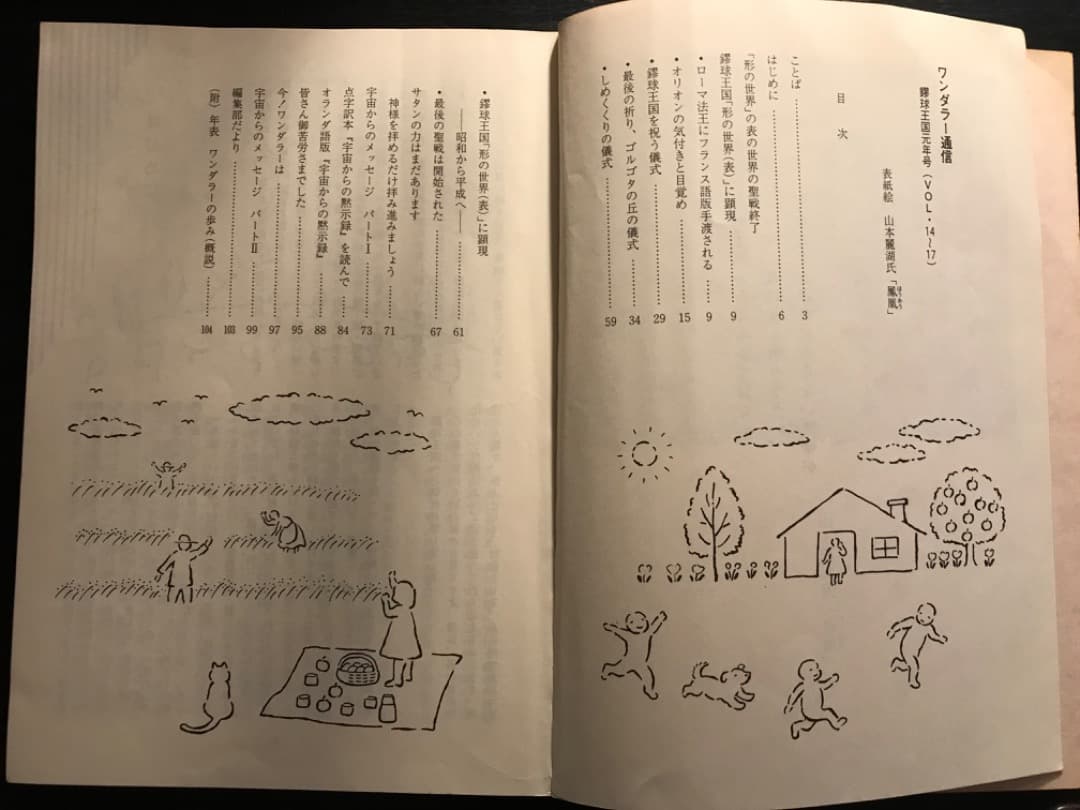 ワンダラー通信
鏐球王国元年号(VOL・14~17)
表紙絵 山本麗湖氏「鳳凰」
ほうおう
目次
ことば……………3
はじめに……………6
「形の世界」の表の世界の聖戦終了
鏐球王国「形の世界(表)」に顕現……………9
・ローマ法王にフランス語版手渡される……………9
・オリオンの気付きと目覚め……………15
・鏐球王国を祝う儀式……………29
・最後の祈り、ゴルゴタの丘の儀式……………34
・しめくくりの儀式……………59
・鏐球王国「形の世界(表)」に顕現
――昭和から平成へ――……………61
・最後の聖戦は開始された……………67
サタンの力はまだあります
神様を拝めるだけ拝み進みましょう……………71
宇宙からのメッセージ パートⅠ……………73
点字訳本『宇宙からの黙示録』を読んで……………84
オランダ語版『宇宙からの黙示録』……………88
皆さん御苦労さまでした……………95
今!ワンダラーは……………97
宇宙からのメッセージ パートⅡ……………99
編集部だより……………103
(附)年表 ワンダラーの歩み(概説)……………104